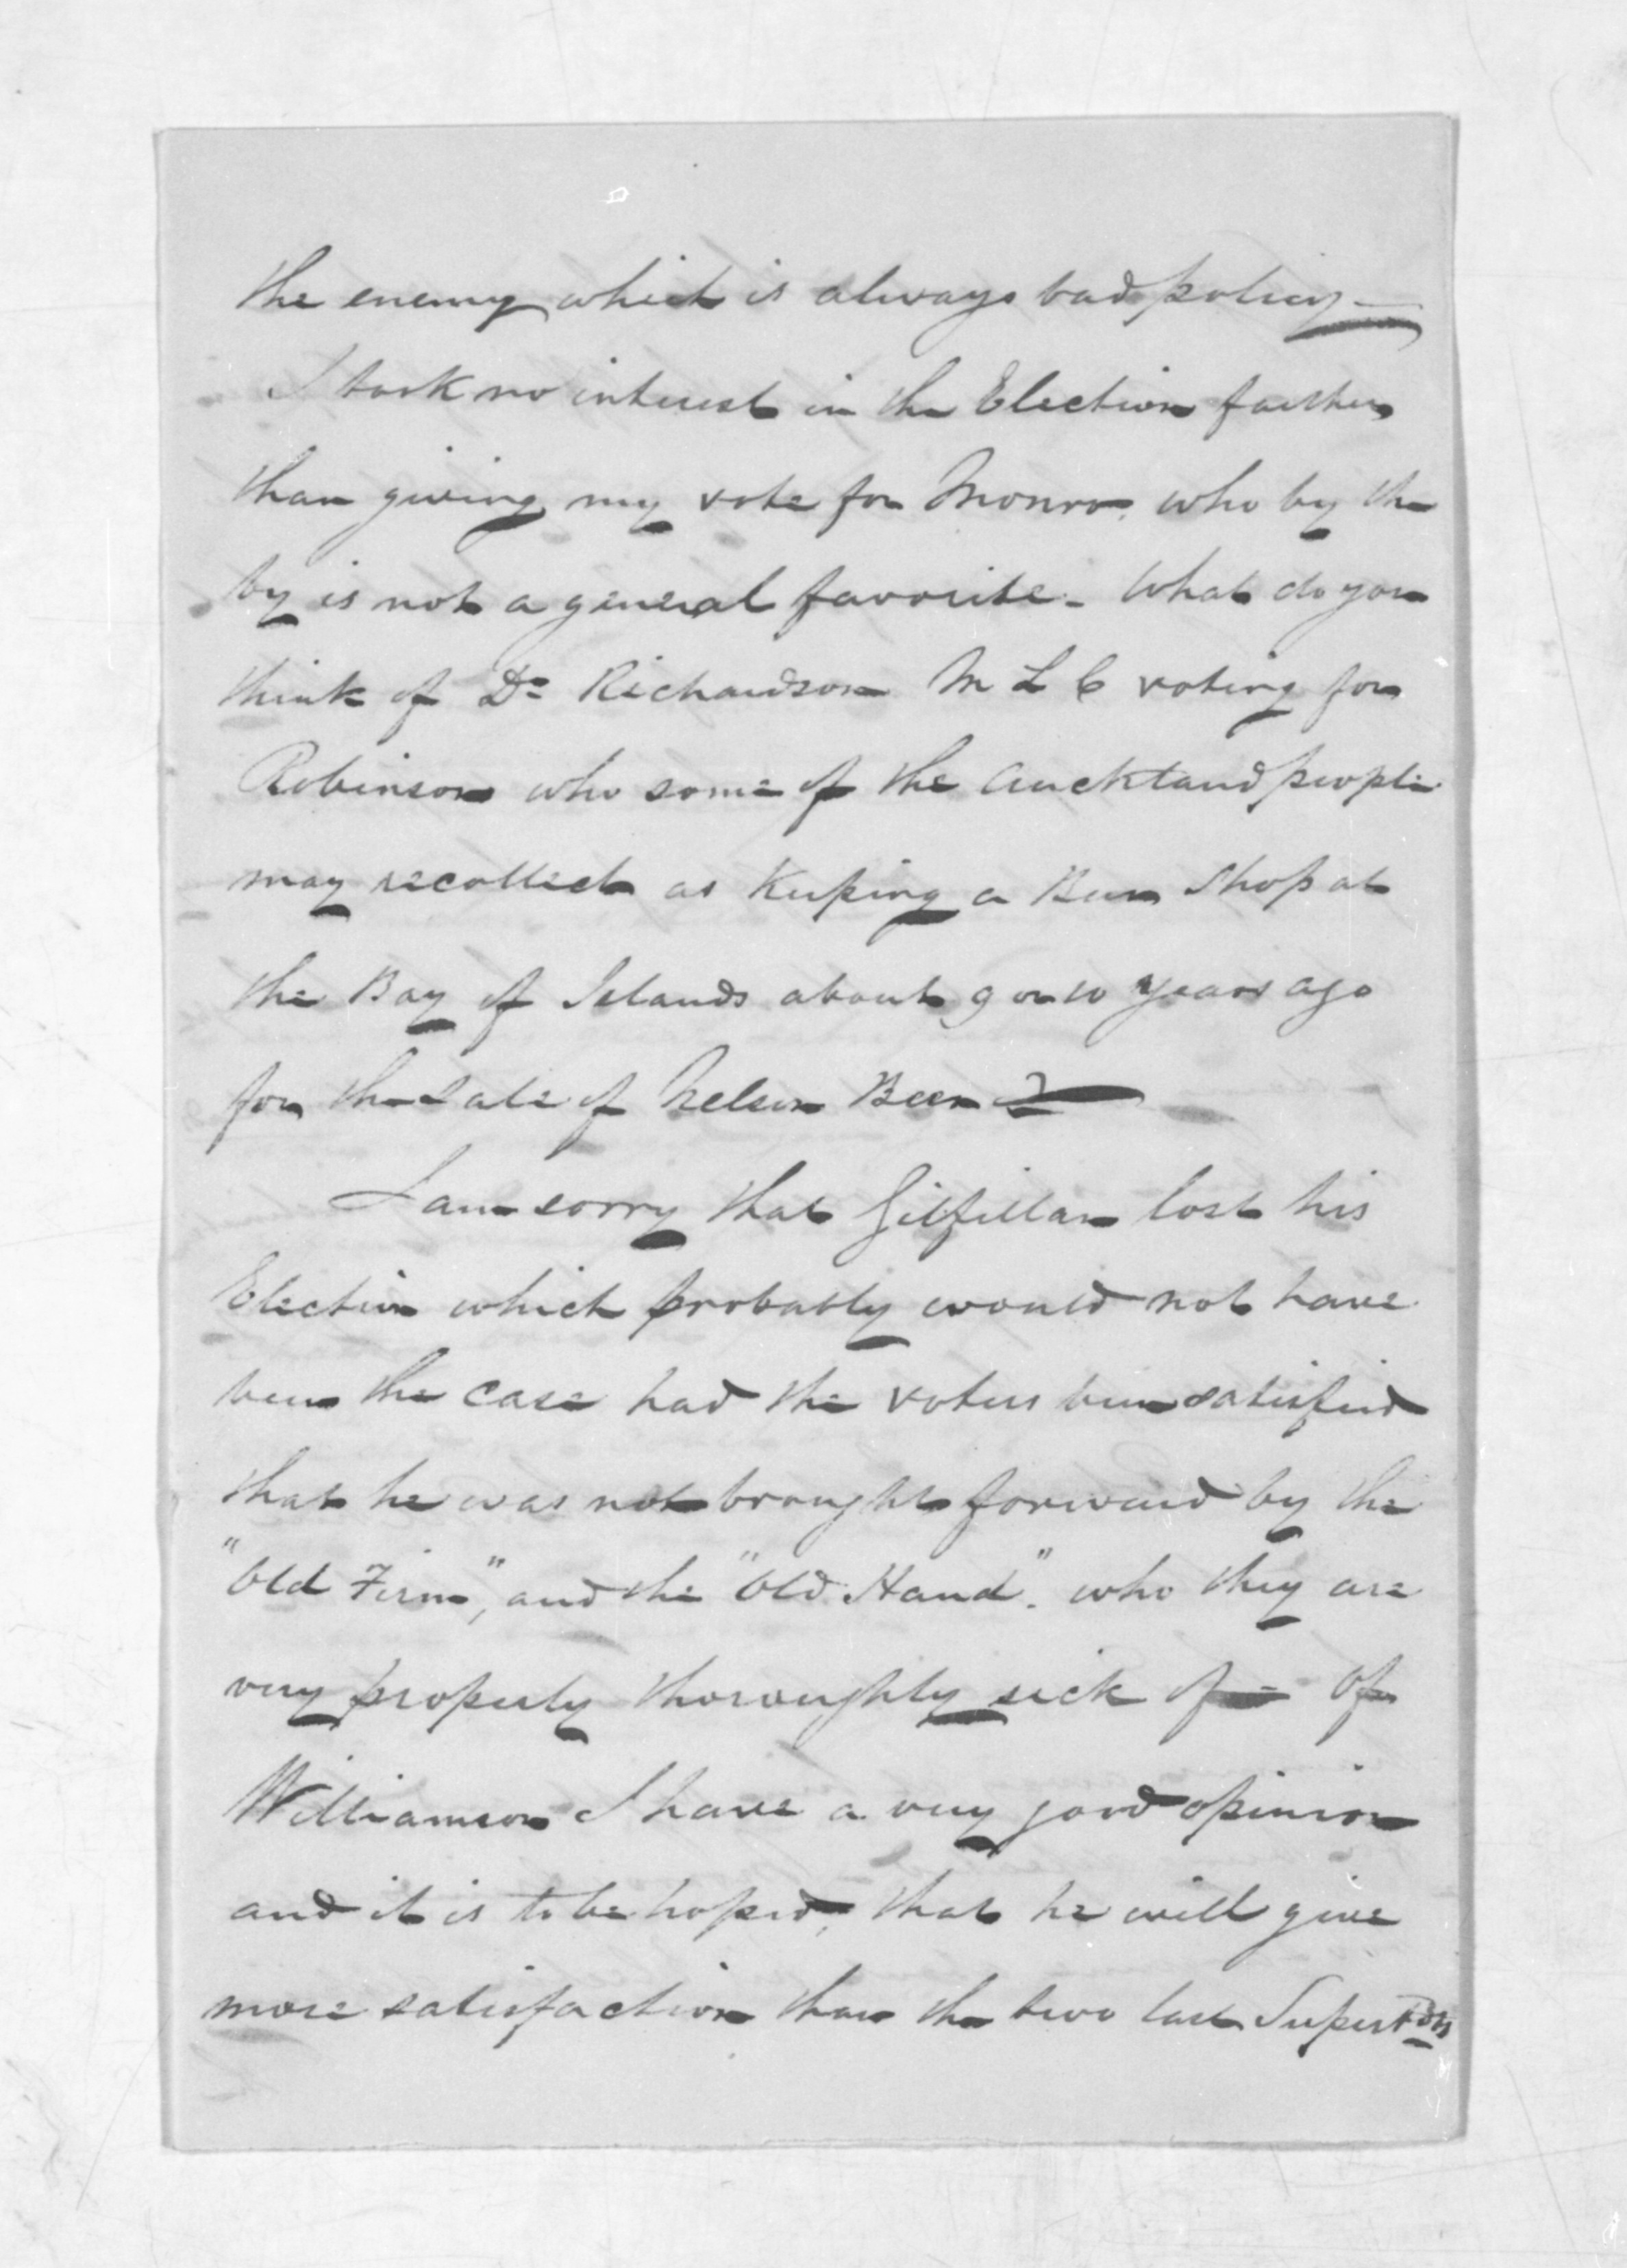 the enemy which is always bad policy —
I took no interest in the Election farther
than giving my vote for Monro. who by the
by is not a general favorite - What do you
think of Dr Richardson M L C voting for
Robinson who some of the Auckland people
may recollect as Keeping a Beer Shop at
the Bay of Islands about 9 or 10 years ago
for the Sale of Nelson Beer ? —
I am sorry that Gilfillan lost his
Election which probably would not have
been the case had the voters been satisfied
that he was not brought forward by the
"Old Firm", and the "Old Hand". who they are
very properly thoroughly sick of - Of
Williamson I have a very good opinion
and it is to be hoped, that he will give
more satisfaction than the two last Superts